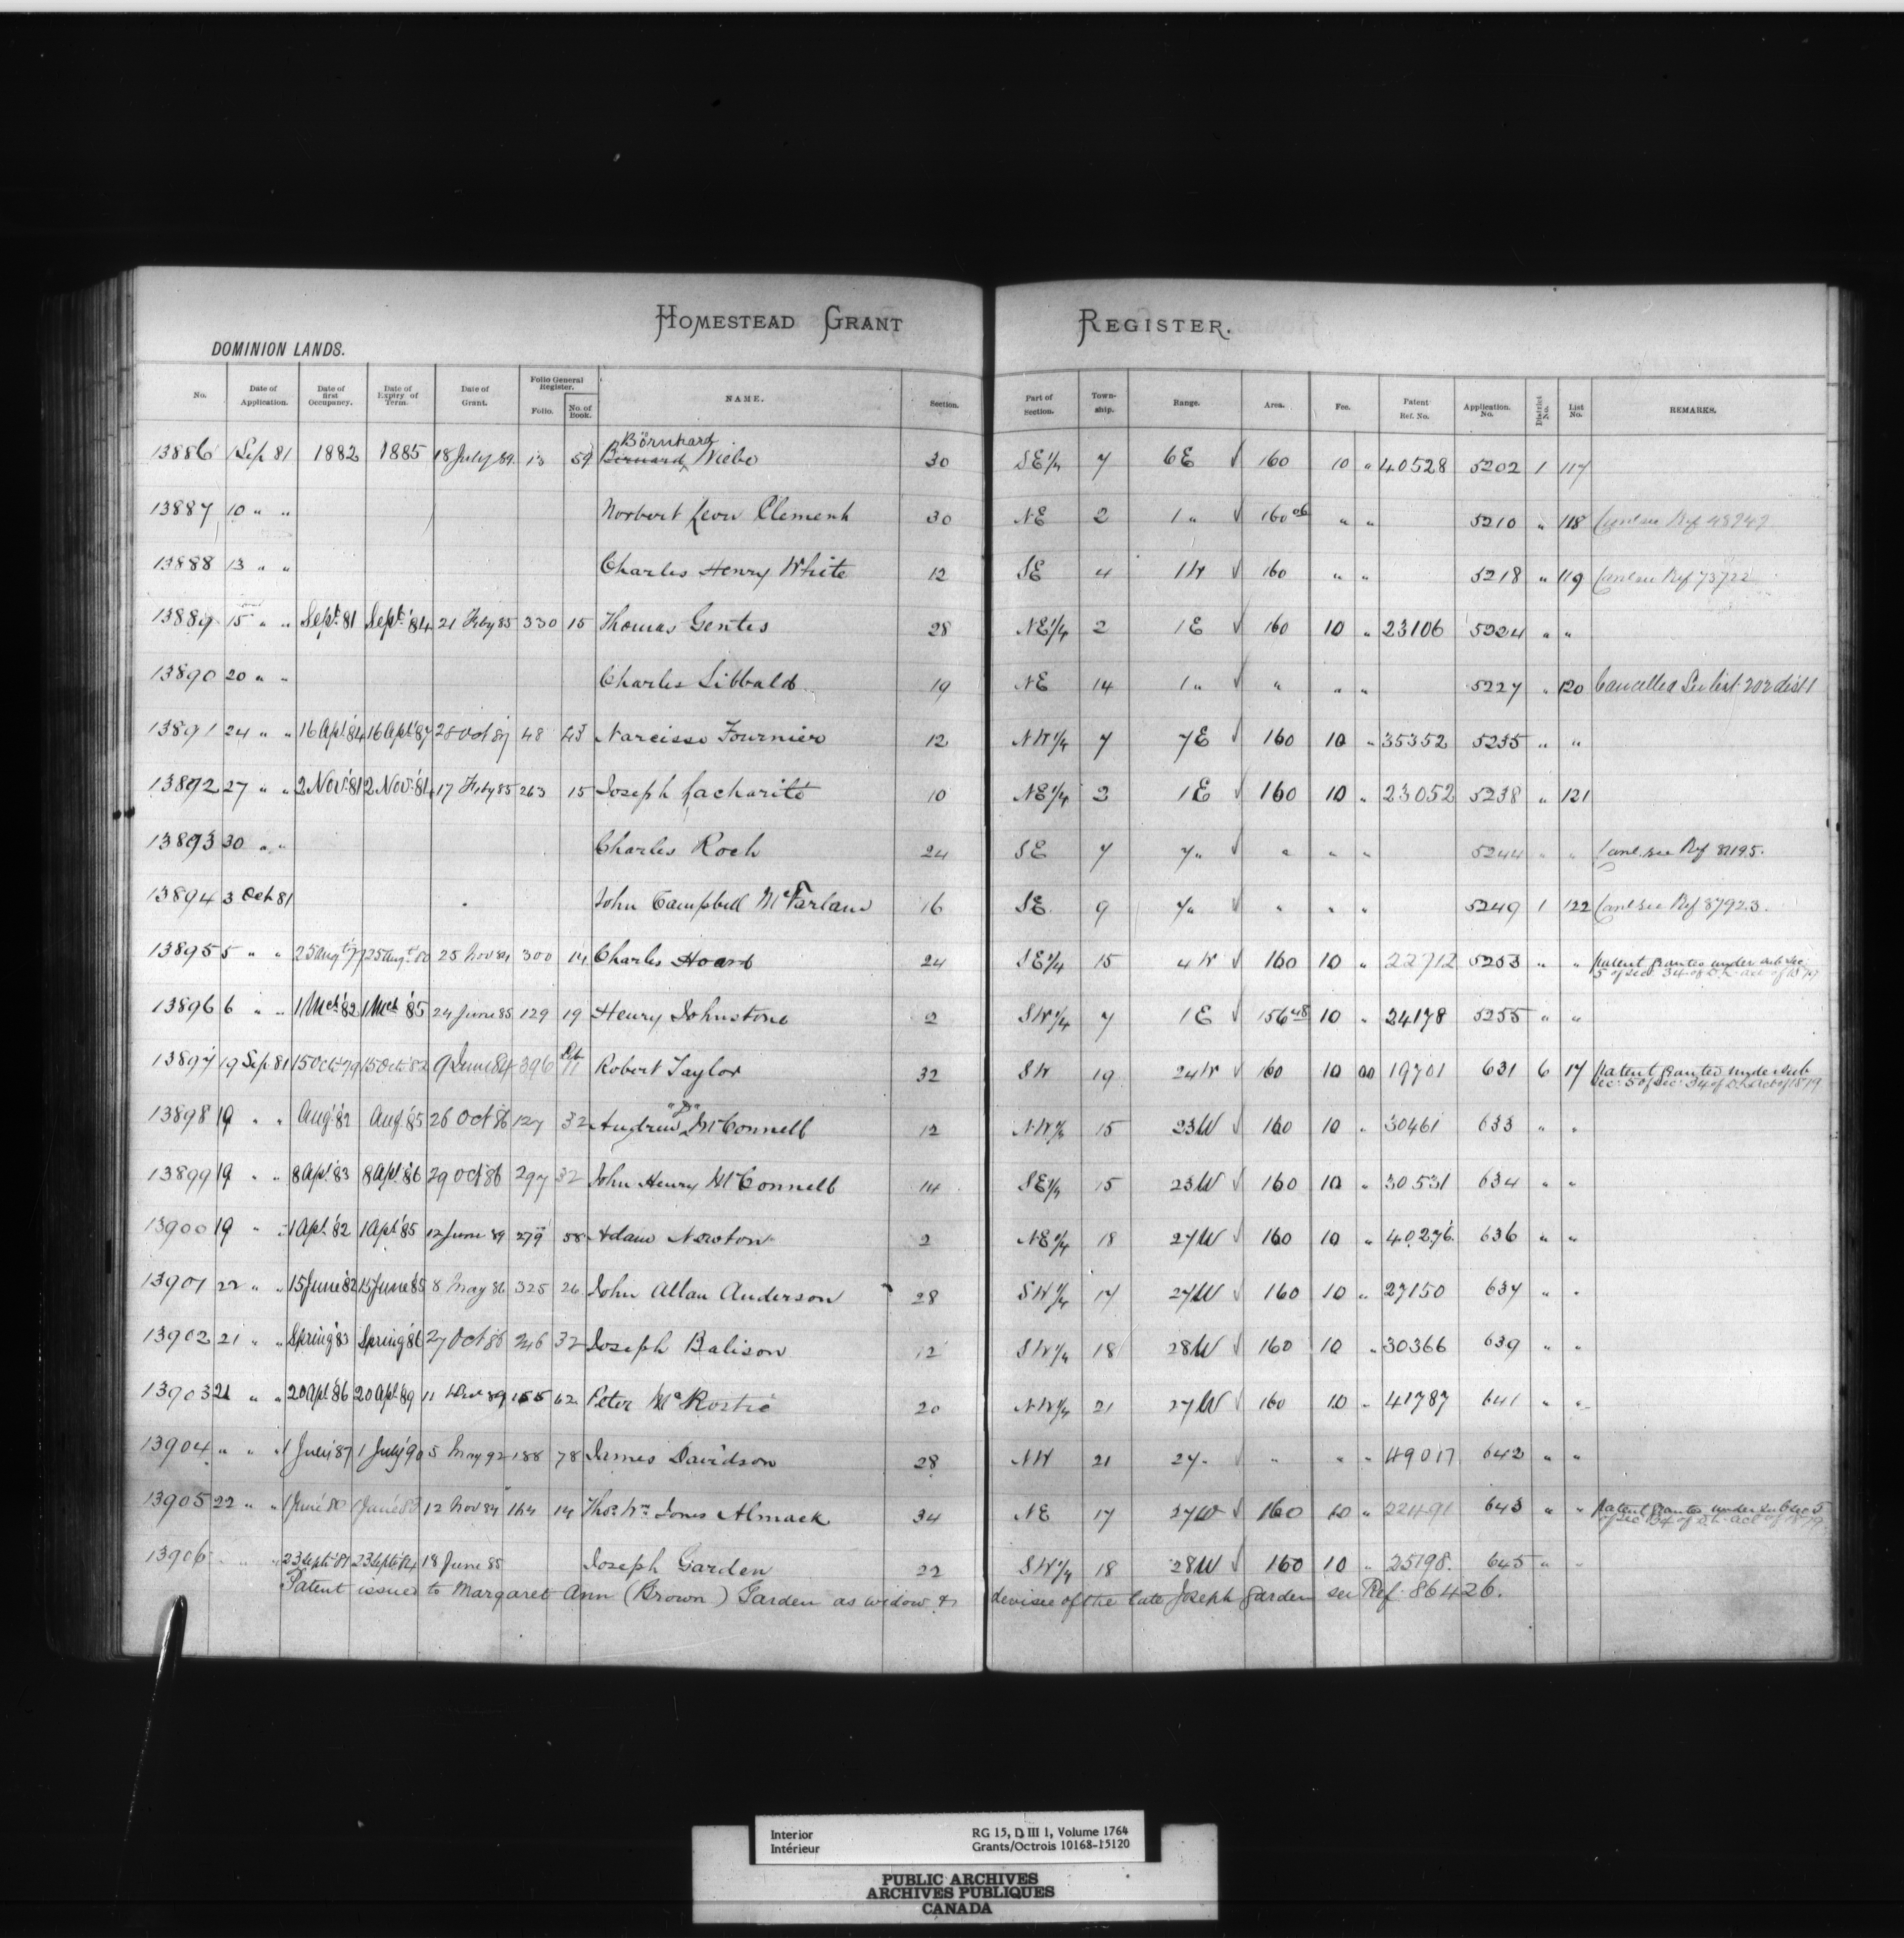 HOMESTEAD GRANT REGISTER.
DOMINION LANDS.
No. Date of Application. Date of first Occupancy. Date of Expiry of Term. Date of Grant. Folio General Register. Folio. No. of Book. NAME. Section. Part of Section. Town-ship. Range. Area. Fee. Patent Ref. No. Application No. District No. List No. REMARKS.
Börnhard
13886 1 Sep 81 1882 1885 18 July 89 13 59 Bernard Niebo 30 SE 1/4 7 6 E √ 160 10 " 40528 5202 1 117
13887 10 " " Norbert Leon Clement 30 NE 2 1 " √ 160 06 " " 5210 " 118 Canl see Ref 48949
13888 13 " " Charles Henry White 12 SE 4 1 W √ 160 " " 5218 " 119 Canl see Ref 73722
13889 15 " " Sept. 81 Sept. '84 21 Feby 85 330 15 Thomas Gentes 28 NE 1/4 2 1 E √ 160 10 " 23106 5224 " "
13890 20 " " Charles Sibbald 19 NE 14 1 " √ " " " 5227 " 120 Cancelled See list 202 dist 1
13891 24 " " 16 Apl '84 16 Apl '87 28 Oct 87 48 43 Narcisse Fournier 12 NW 1/4 7 7 E √ 160 10 " 35352 5235 " "
13892 27 " " 2 Nov. '81 2 Nov. '84 17 Feby 85 263 15 Joseph Lacharité 10 NE 1/4 2 1 E √ 160 10 " 23052 5238 " 121
13893 30 " " Charles Roch 24 SE 7 7 " √ " " " 5244 " " Canl. see Ref 82195.
13894 3 Oct 81 John Campbell McFarland 16 SE 9 7 " √ " " " 5249 1 122 Canl see Ref 87923.
13895 5 " " 25 Augt '77 25 Augt '80 25 Nov 84 300 14 Charles Hoard 24 SE 1/4 15 4 W √ 160 10 " 22712 5253 " " Patent Granted under sub sec.
5 of sec 34 of D. L. act of 1879
13896 6 " " 1 Mch '82 1 Mch '85 24 June 85 129 19 Henry Johnstone 2 SW 1/4 7 1 E √ 156 48 10 " 24178 5255 " "
13897 19 Sep 81 15 Oct '79 15 Oct '82 9 June 84 396 11 Robert Taylor 32 SW 19 24 W √ 160 10 00 19701 631 6 17 Patent Granted under sub
sec: 5 of sec: 34 of D. L. Act of 1879
"P"
13898 19 " " Aug. '82 Aug. '85 26 Oct 86 127 32 Andrew McConnell 12 NW 1/4 15 23 W √ 160 10 " 30461 633 " "
13899 19 " " 8 Apl. '83 8 Apl. '86 29 Oct 86 297 32 John Henry McConnell 14 SE 1/4 15 23 W √ 160 10 " 30531 634 " "
13900 19 " " 1 Apl. '82 1 Apl. '85 12 June 89 279 58 Adam Newton 2 NE 1/4 18 27 W √ 160 10 " 40276 636 " "
13901 22 " " 15 June '82 15 June '85 8 May 86 325 26 John Allan Anderson 28 SW 1/4 17 27 W √ 160 10 " 27150 637 " "
13902 21 " " Spring '83 Spring '86 27 Oct 86 246 32 Joseph Balison 12 SW 1/4 18 28 W √ 160 10 " 30366 639 " "
13903 21 " " 20 Apl. '86 20 Apl. '89 11 89 155 62 Peter McRostie 20 NW 1/4 21 27 W √ 160 10 " 41787 641 " "
13904 " " " 1 July '87 1 July '90 5 May 92 188 78 James Davidson 28 NW 21 27 " √ " " " 49017 642 " "
13905 22 " " 1 June '80 1 June '83 12 Nov 84 164 14 Thos. Wm. Jones Almack 34 NE 17 27 W √ 160 10 " 22491 643 " " Patent Granted under sub sec 5
of sec 34 of D. L. act of 1879
13906 " " " 23 Sept '81 23 Sept '84 18 June 85 Joseph Garden 22 SW 1/4 18 28 W √ 160 10 " 25198. 645 " "
Patent issued to Margaret Ann (Brown) Garden as widow & devisee of the late Joseph Garden see Ref. 86426.
Interior RG 15, D III 1, Volume 1764
Intérieur Grants/Octrois 10168-15120
PUBLIC ARCHIVES
ARCHIVES PUBLIQUES
CANADA